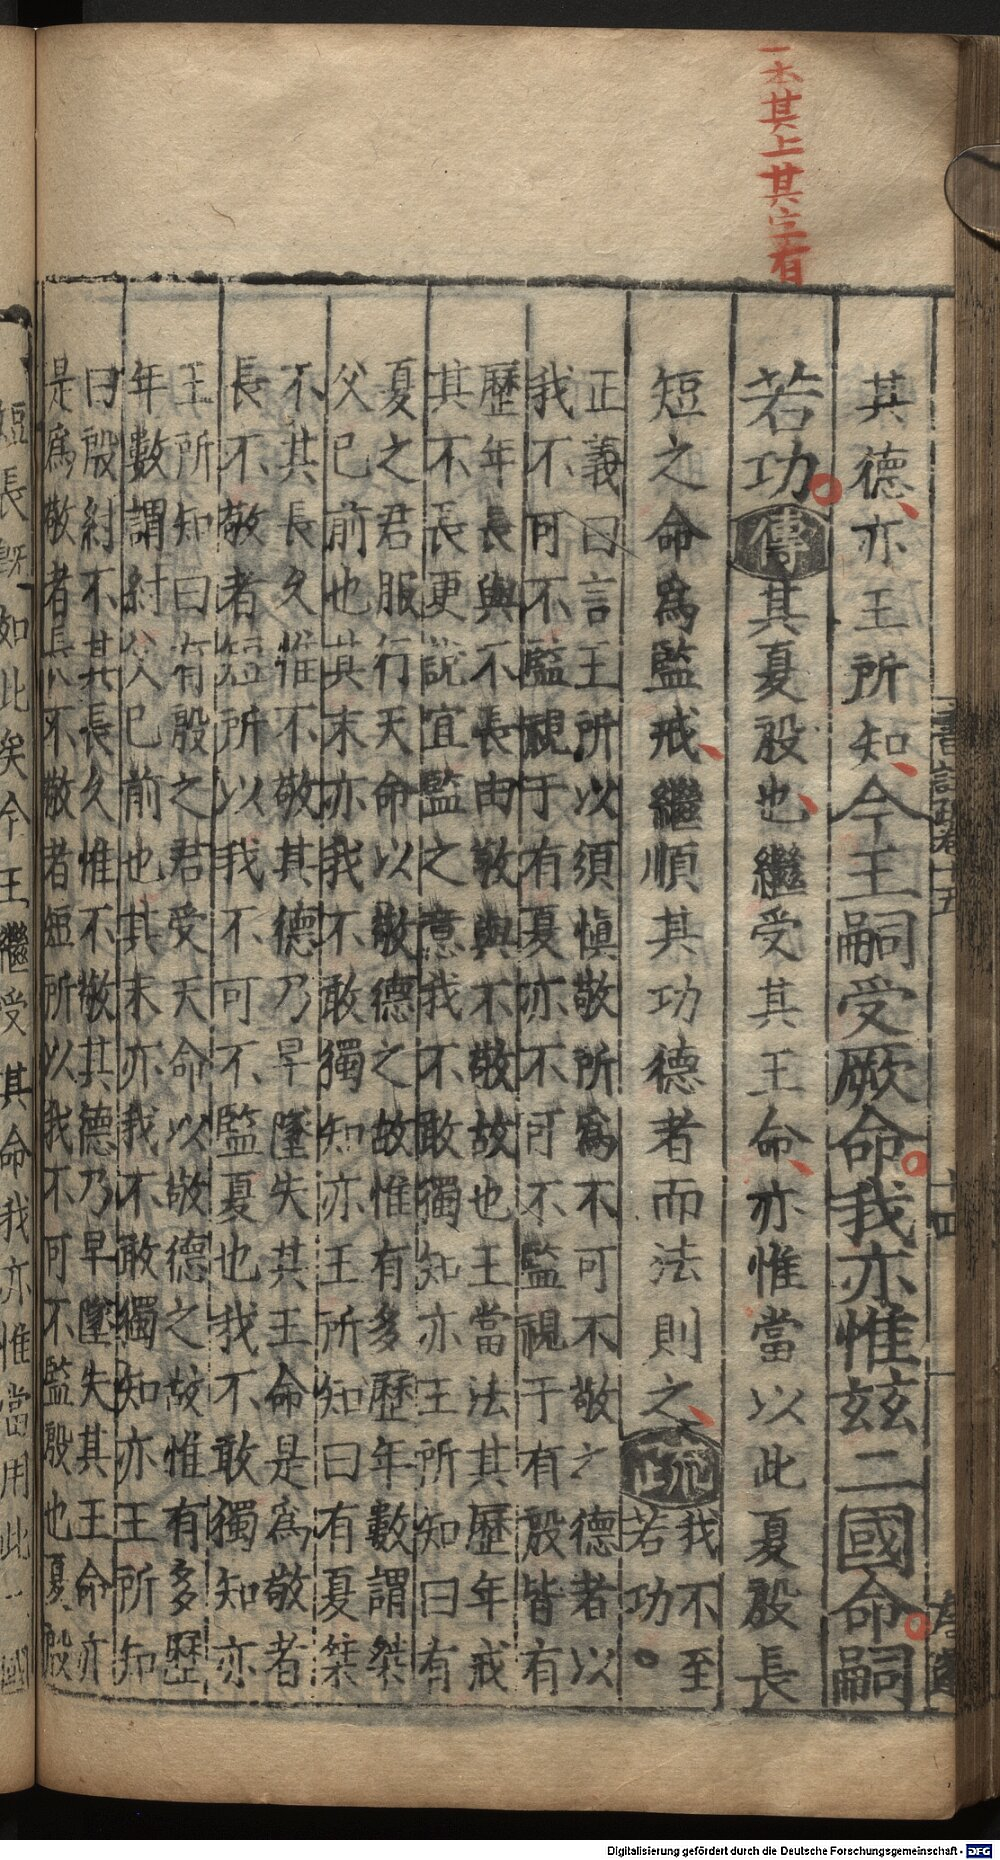 一本其上其字有
其德亦王所知今王嗣受厥命我亦惟玆二國命嗣
若功傳其夏殷也繼受其王命亦惟當以此夏殷長
短之命爲監戒繼順其功德者而法則之疏正我不至
若功
正義曰言王所以須愼敬所爲不可不敬之德者以
我不可不監視于有夏亦不可不監視于有殷皆有
歷年長與不長由敬與不敬故也王當法其歷年戒
其不長更說宜監之意我不敢獨知亦王所知曰有
夏之君服行天命以敬德之故惟有多歷年數謂桀
父已前也其末亦我不敢獨知亦王所知曰有夏桀
不其長久惟不敬其德乃早墜失其王命是爲敬者
長不敬者短所以我不可不監夏也我不敢獨知亦
王所知曰有殷之君受天命以敬德之故惟有多歷
年數謂紂父已前也其末亦我不敢獨知亦王所知
曰殷紂不其長久惟不敬其德乃早墜失其王命亦
是爲敬者長不敬者短所以我不可不監殷也夏殷
短長旣如此矣今王繼受其命我亦惟當用此二國
十四
Digitalisierung gefördert durch die Deutsche Forschungsgemeinschaft - DFG